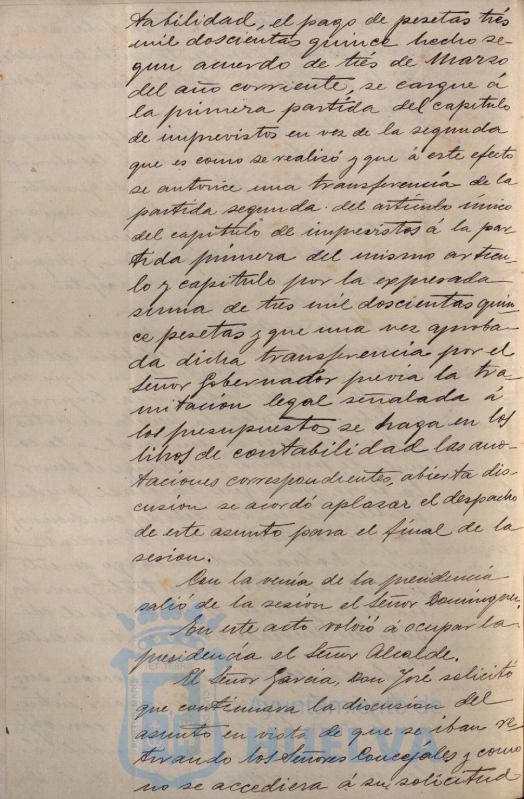 tabilidad, el pago de pesetas tres
mil doscientas quince hecho se-
gun acuerdo de tres de Marzo
del año corriente, se cargue á
la primera partida del capitulo
de imprevistos en vez de la segunda
que es como se realizó y que á este efecto
se autorice una transferencia de la
partida segunda del articulo único
del capitulo de imprevistos á la par-
tida primera del mismo articu-
lo y capitulo por la expresada
suma de tres mil doscientas quin-
ce pesetas y que una vez aproba-
da dicha transferencia por el
Señor Gobernador previa la tra-
mitacion legal señalada á
los presupuestos se haga en los
libros de contabilidad las ano-
taciones correspondientes, abierta dis-
cusion se acordó aplazar el despacho
de este asunto para el final de la
sesion.
Con la venia de la presidencia
salió de la sesion el Señor Dominguez
En este acto volvió á ocupar la
presidencia el Señor Alcalde.
El Señor Garcia, Don José solicitó
que continuara la discusion del
asunto en vista de que se iban re-
tirando los Señores Concejales y como
no se accediera á su solicitud
HUELVA